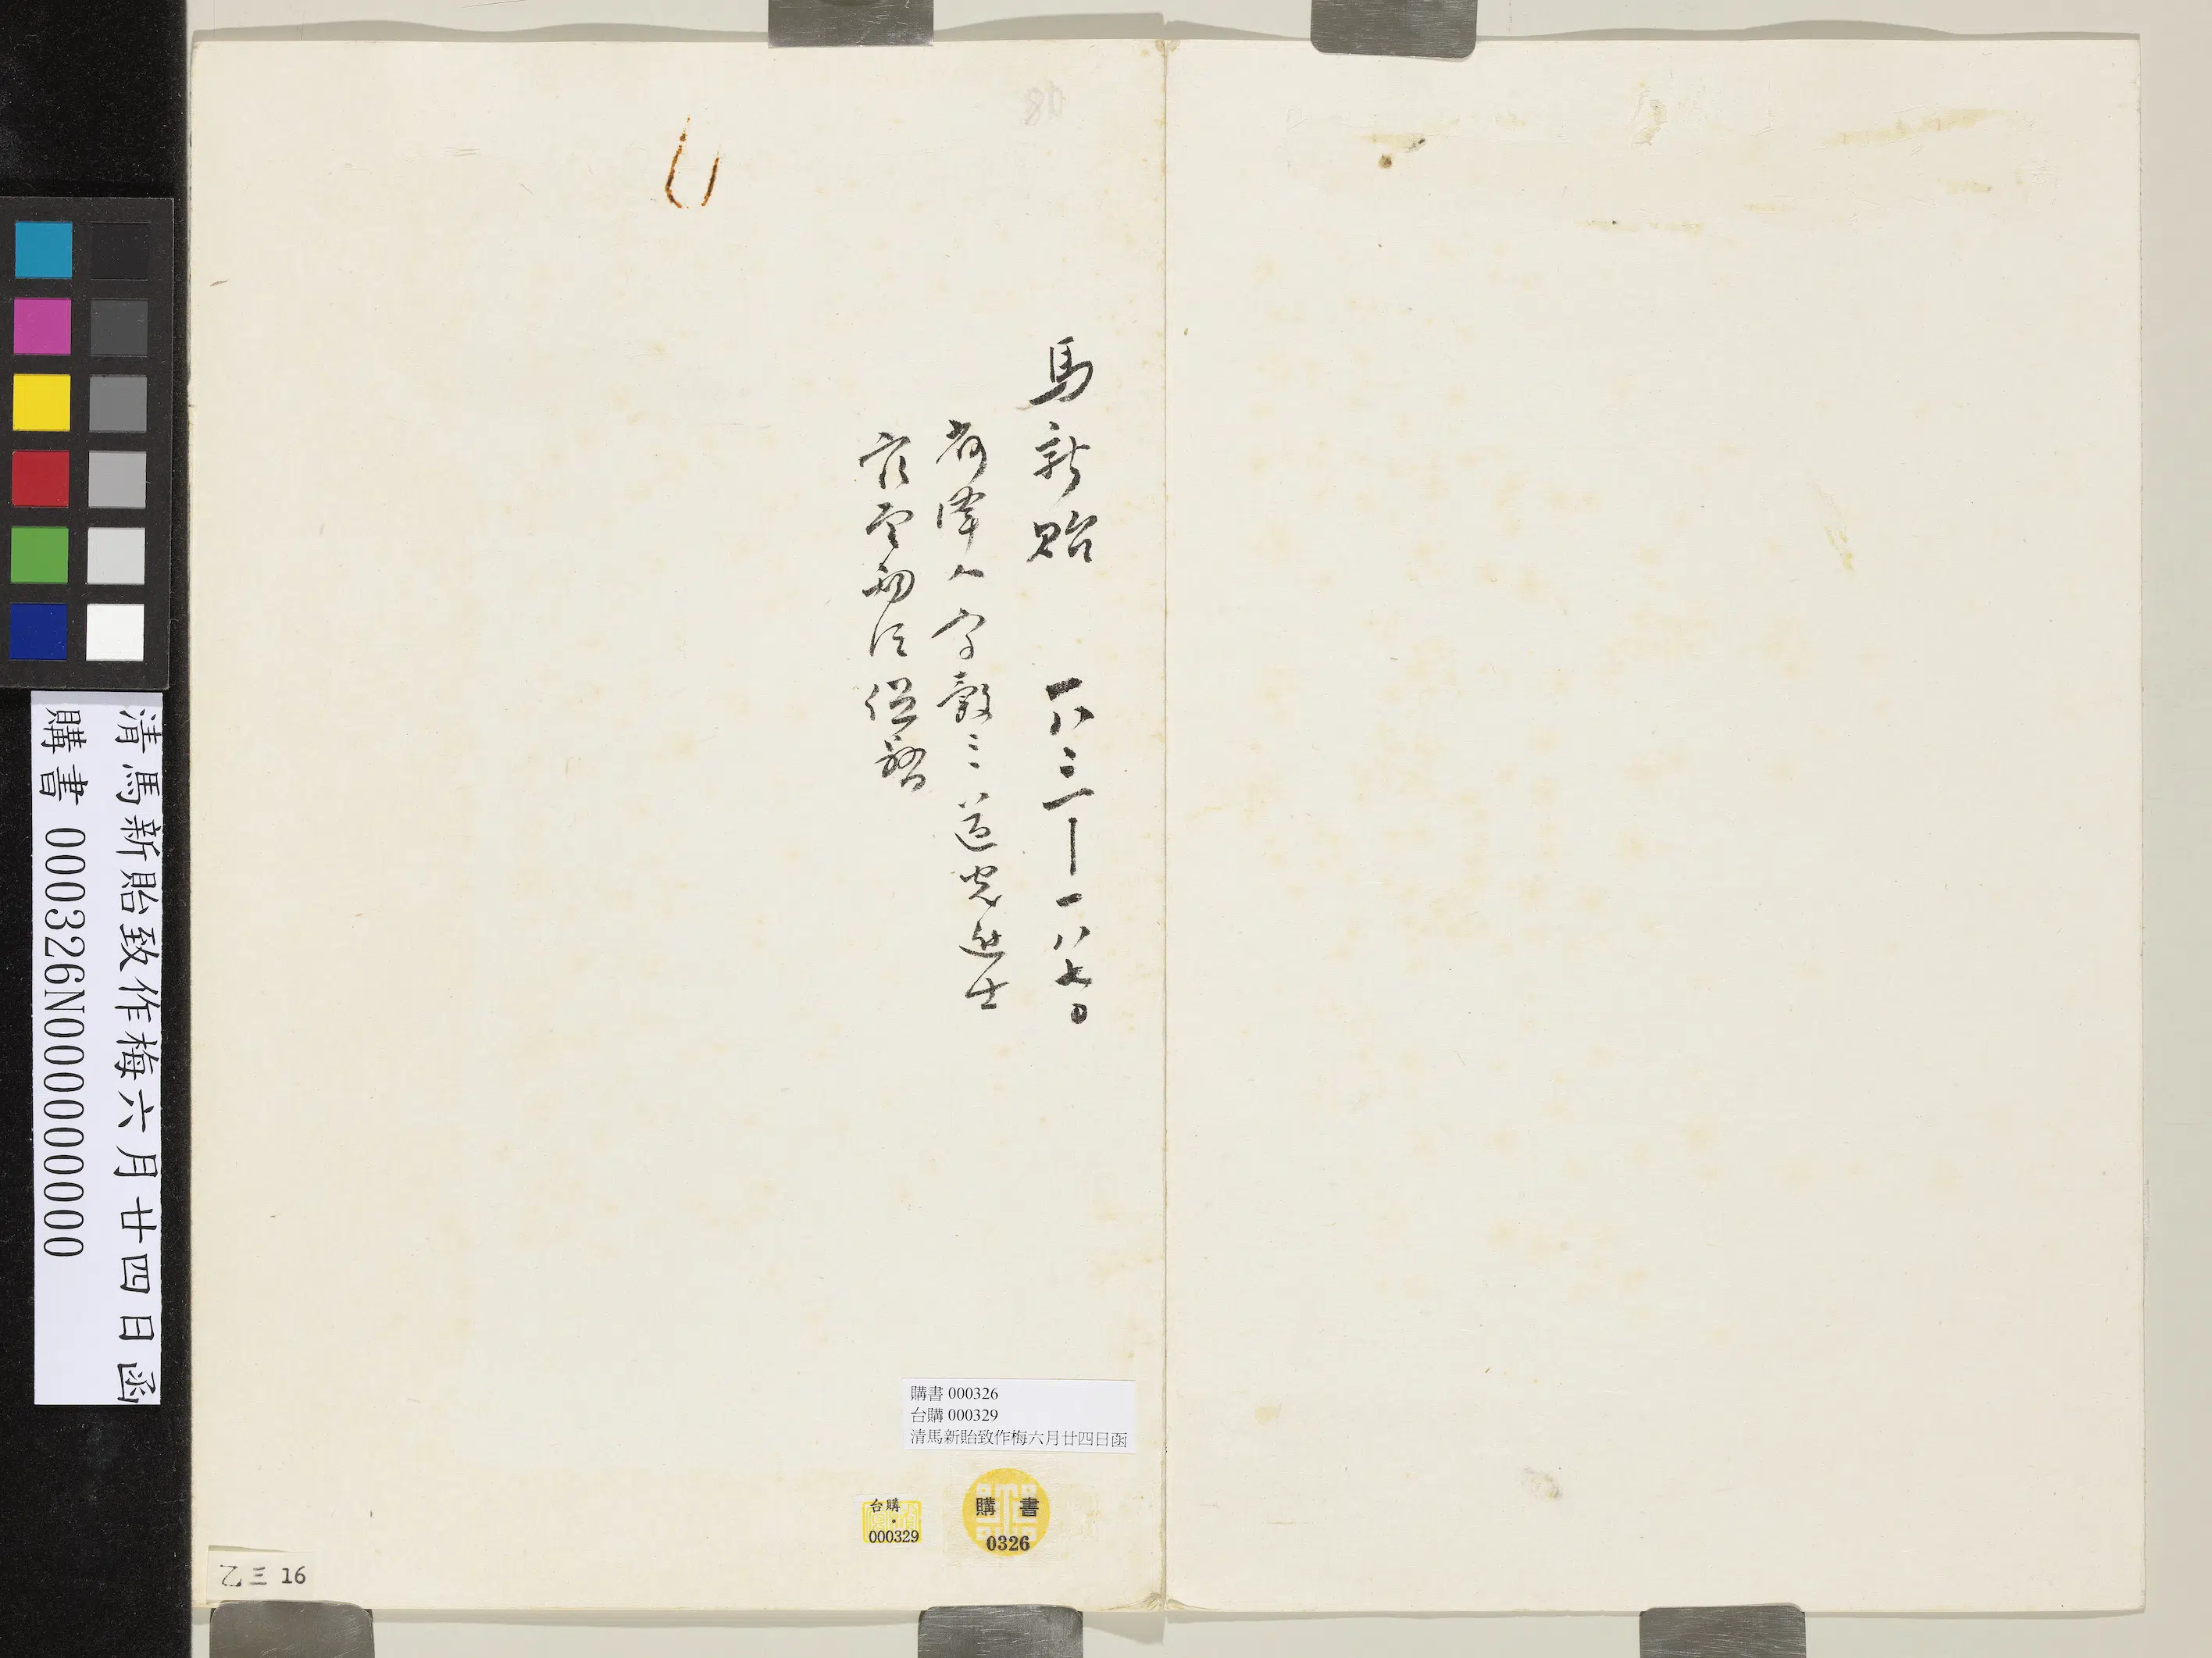 馬新貽 一八二一—一八七〇
菏澤人字穀三道光進士
官至兩江總督
清馬新貽致作梅六月廿四日函
購書 000326N000000000
購書 000326
台購 000329
清馬新貽致作梅六月廿四日函
台購
000329
購書
0326
乙三 16